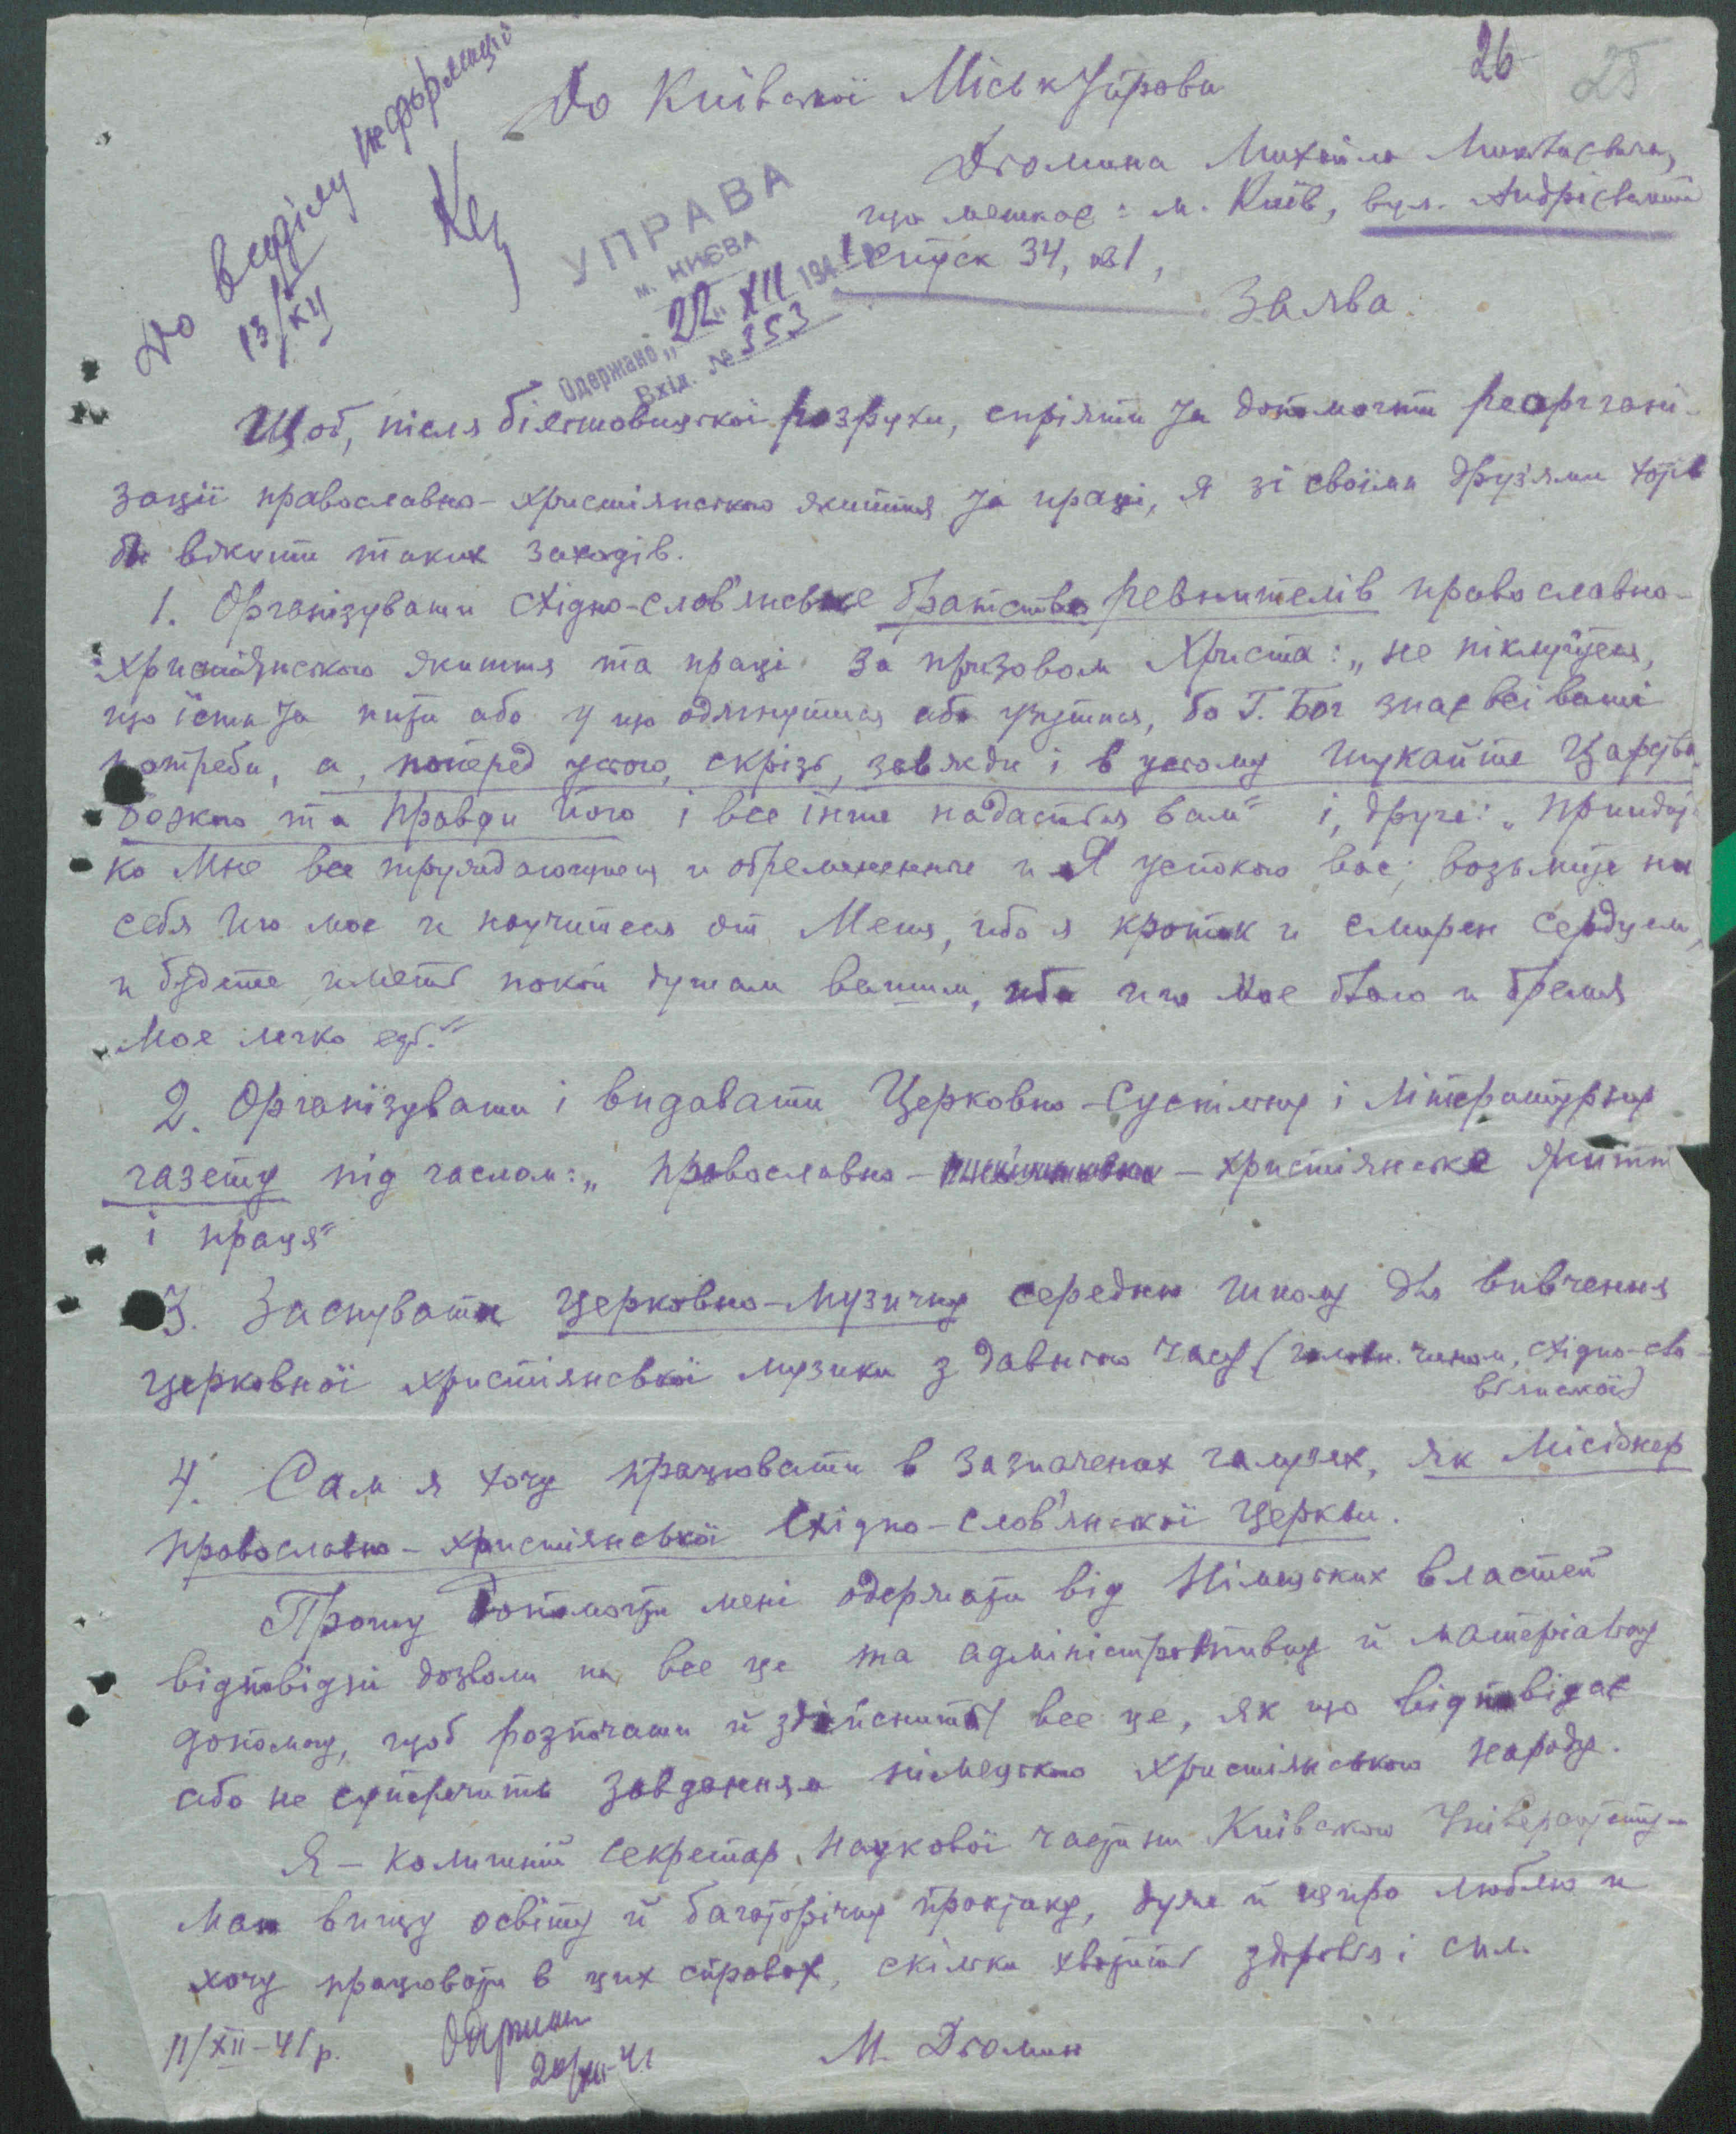 26 28
До Київської МіськУправи
До відділу інформації
13/XII
Дьомина Михайла
що мешкає: м. Київ, вул. Андріївський
спуск 34, кв 1,
УПРАВА
м. КИЄВА
Одержано „22" XII 1941
Вхід. № 353
Заява.
Щоб, після більшовицької розрухи, спріяти та допомогти реоргані-
зації православно-християнського життя та праці, я зі своїми друз'ями хотів
би вжити таких заходів.
1. Організувати східно-слов'янське братство ревнителів православно-
християнського життя та праці за призовом Христа: „не піклуйтеся,
що їсти та пити або у що одягнутися або узутися, бо Г. Бог знає всі ваші
потреби, а, поперед усього, скрізь, завжди і в усьому шукайте Царства
Божого та правди Його і все інше надасться вам" і, друге: „Приидите
ко Мне все труждающиеся и обремененные и Я успокою вас; возьмите на
себя иго мое и научитеся от Меня, ибо я кроток и смирен сердцем,
и будете иметь покой душам вашим, ибо иго Мое благо и бремя
Мое легко есть."
2. Організувати і видавати Церковно-Суспільну і Літературну
газету під гаслом: „Православно- - християнське життя
і праця"
3. Заснувати церковно-музичну середню школу для вивчення
церковної християнської музики з давнього часу (головн. чином, східно-сло-
в'янської)
4. Сам я хочу працювати в зазначених галузях, як Місіонер
православно-християнської Східно-слов'янської Церкви.
Прошу допомогти мені одержати від Німецьких властей
відповідні дозволи на все це та адміністративну й матеріальну
допомогу, щоб розпочати й здійснити все це, як що відповідає
або не суперечить завданням німецького християнського народу.
Я – колишній секретар Наукової частини Київського Університету
Маю вищу освіту й багаторічну практику, дуже й щиро люблю и
хочу працювати в цих справах, скільки хватить здоров'я і сил.
11/XII-41 р.
М. Дьомин
20/XII-41